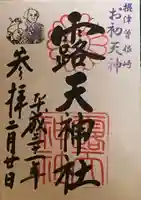 摂津曽根崎
お初天神
露天神社
参拝
平成二十一年
二月廿日